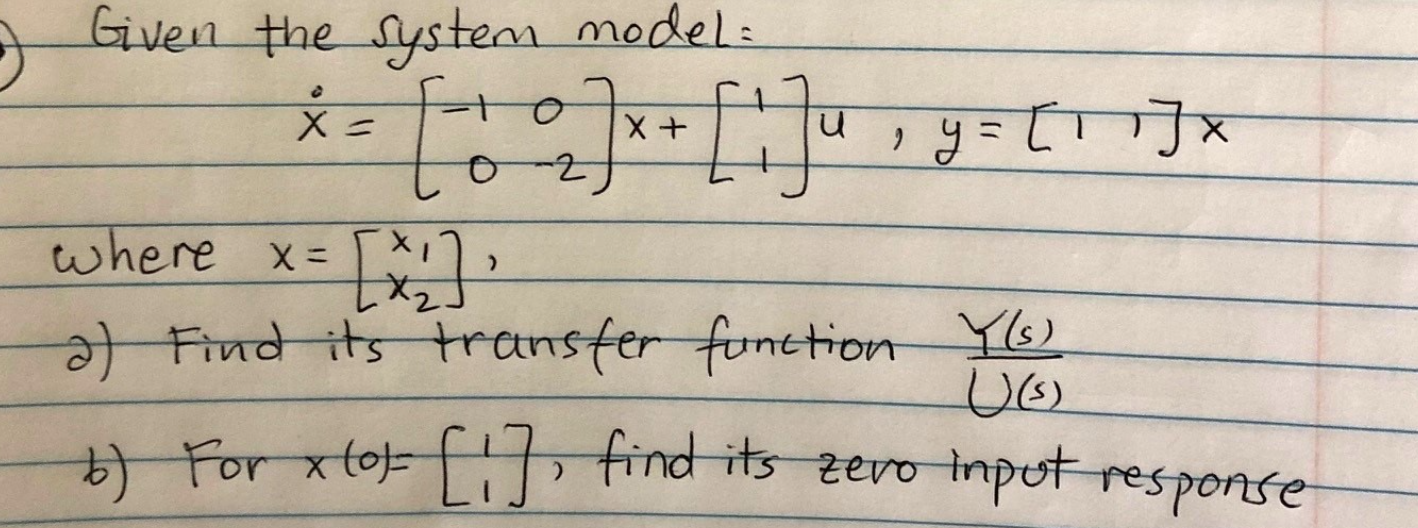 Given the system model:
ẋ = [-1 0; 0 -2] x + [1; 1] u , y = [1 1] x
where x = [x₁; x₂] ,
a) Find its transfer function Y(s)/U(s)
b) For x(0)= [1; 1] , find its zero input response